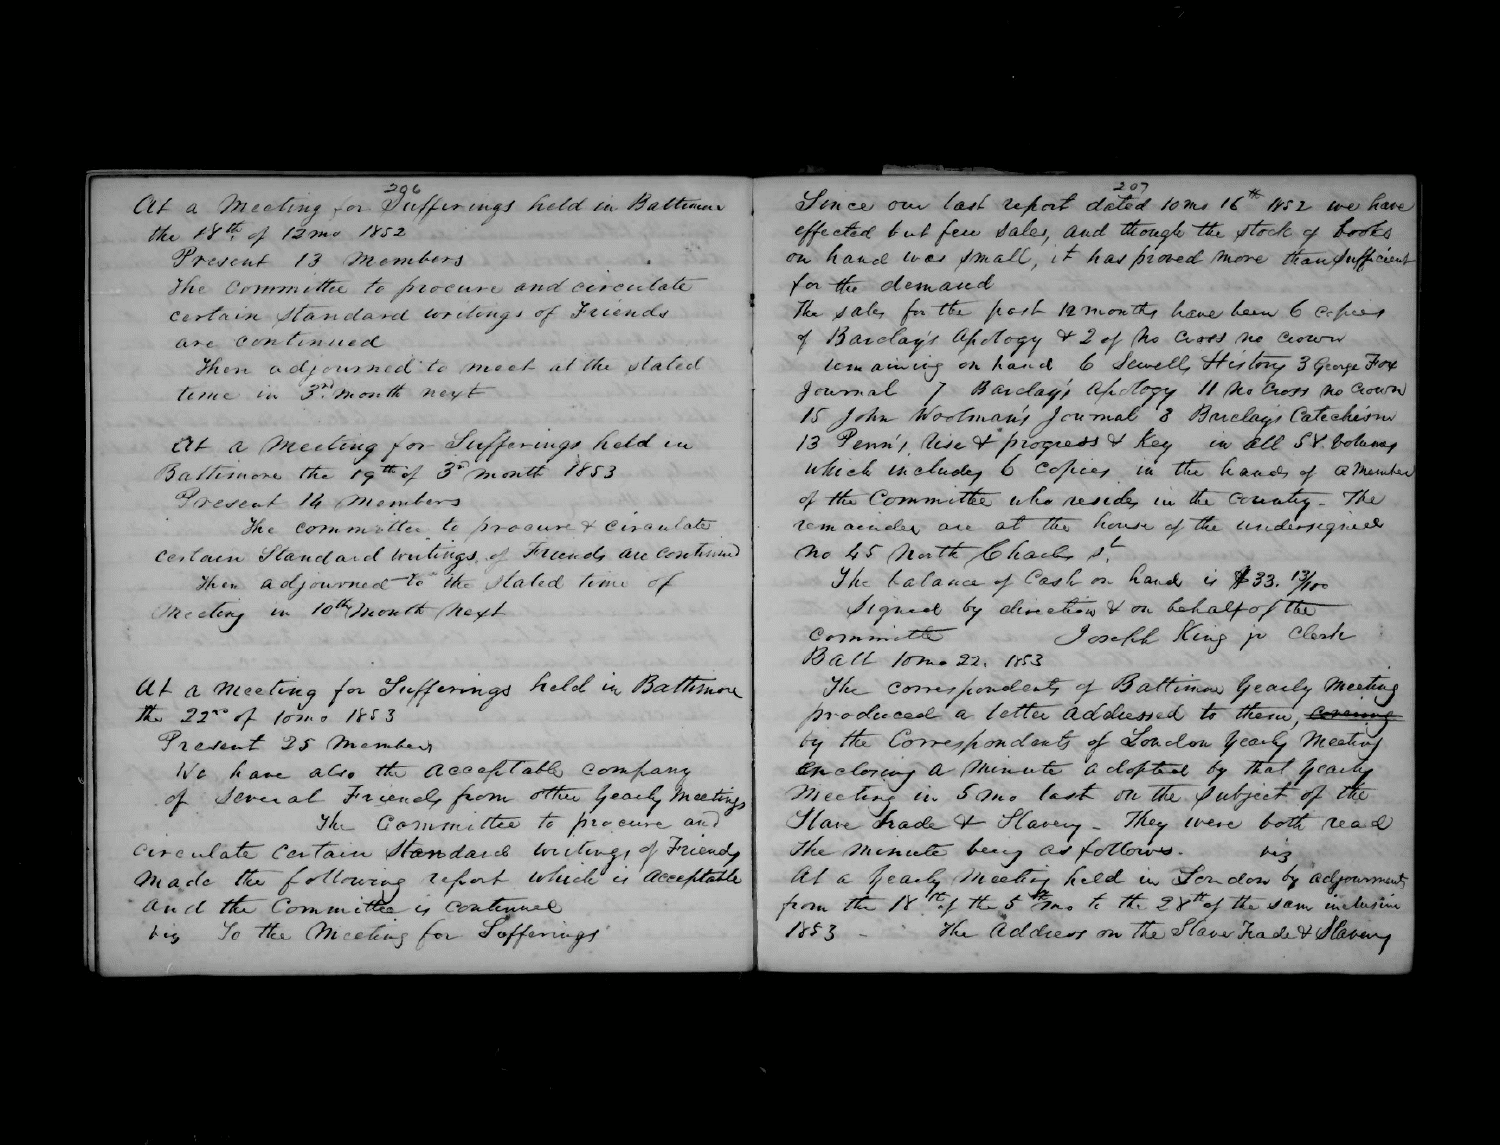 206
At a Meeting for Sufferings held in Baltimore
the 18th. of 12mo 1852
Present 13 Members
The Committee to procure and circulate
certain Standard writings of Friends
are continued
Then adjourned to meet at the stated
time in 3rd. month next
At a Meeting for Sufferings held in
Baltimore the 19th of 3d month 1853
Present 14 Members
The committee to procure & circulate
certain Standard writings of Friends are continued
Then adjourned to the Stated time of
Meeting in 10th Month Next
At a Meeting for Sufferings held in Baltimore
the 22nd of 10mo 1853
Present 25 Members
We have also the acceptable company
of several Friends from other Yearly Meetings
The Committee to procure and
circulate certain Standard writings of Friends
made the following report which is acceptable
and the Committee is continued
viz To the Meeting for Sufferings
207
Since our last report dated 10mo 16th 1852 we have
effected but few sales, and though the stock of books
on hand was small, it has proved more than sufficient
for the demand
The sales for the past 12 months have been 6 copies
of Barclay's Apology & 2 of No Cross no crown
remaining on hand 6 Sewells History 3 George Fox
Journal 7 Barclay's Apology 11 No Cross No Crown
15 John Woolman's Journal 3 Barclays Catechism
13 Penn's Rise & progress & Key in all 58 volumes
which includes 6 copies in the hands of a Member
of the Committee who resides in the Country - The
remainder are at the house of the undersigned
No 45 North Charles St.
The balance of Cash on hand is $33. 13/100
Signed by direction & on behalf of the
Committee Joseph King jr Clerk
Balt 10mo 22. 1853
The correspondents of Baltimore Yearly Meeting
produced a letter addressed to them, covering
by the Correspondents of London Yearly Meeting
Enclosing a Minute adopted by that Yearly
Meeting in 5mo last on the subject of the
Slave Trade & Slavery - They were both read
The minute being as follows. viz
At a Yearly Meeting held in London by adjournments
from the 18th of the 5th mo to the 28th of the same inclusive
1853 - The Address on the Slave Trade & Slavery